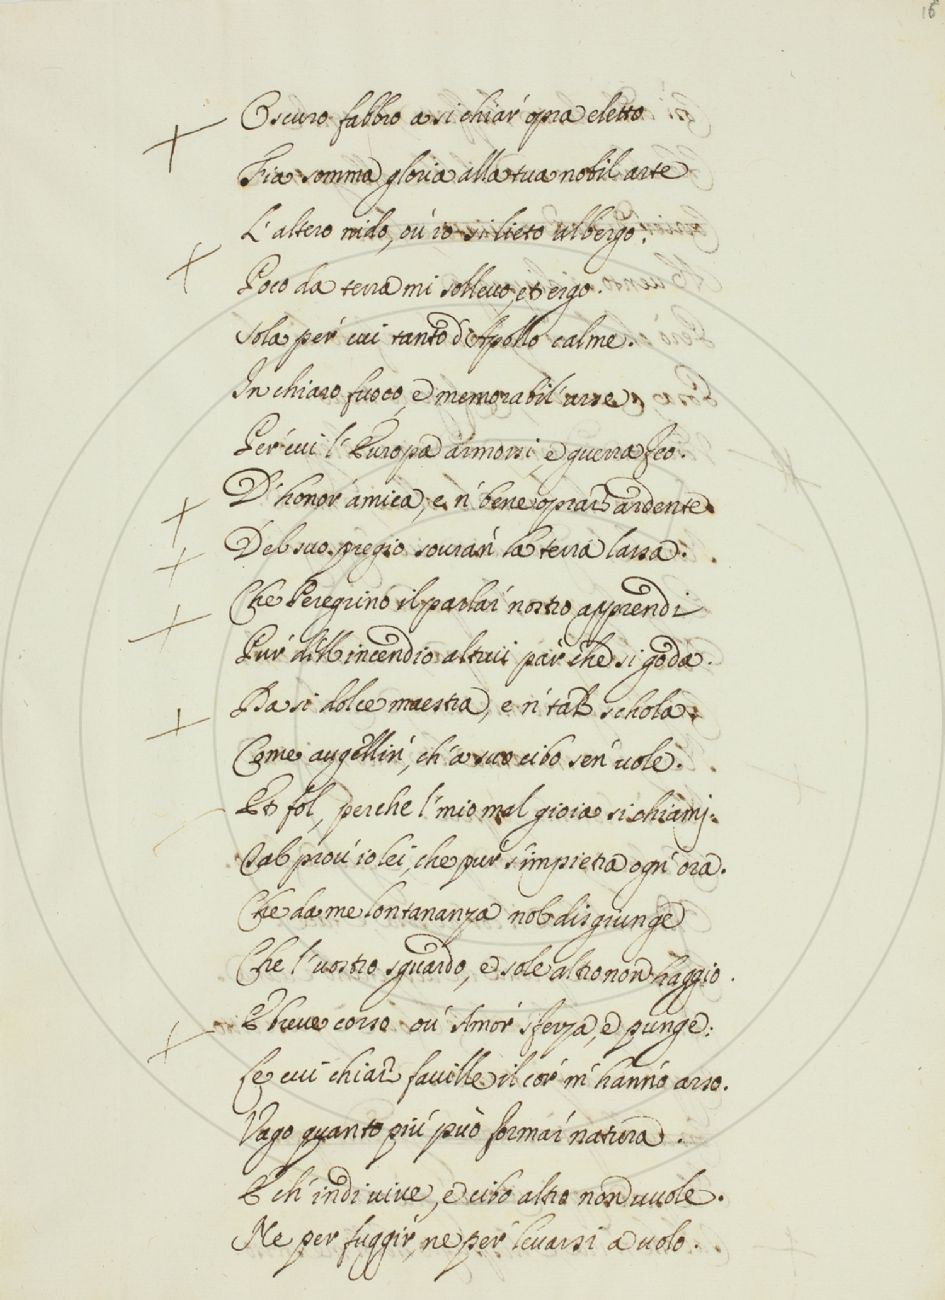 16
Oscuro fabbro a si chiar' opra eletto
Fia somma gloria alla tua nobil arte
L' altero nido, ou' io si lieto albergo.
Poco da terra mi solleuo, et ergo.
Sola per' cui tanto d'Apollo calme.
In chiaro fuoco, e memorabil' arse
Per cui l' Europa armossi, e guerra feo.
D' honor' amica, e n' bene oprar' ardente
Del suo pregio souran' la terra lassa.
Che Peregrino il parlar' nostro apprendi
Pur' dell incendio altrui par che si goda.
Da si dolce maestra, e n' tal schola
Come augellin', ch' a suo cibo sen' uole.
Et sol, perche l' mio mal gioia si chiami.
Tal prou' io lei, che pur s'impietra ogn' ora.
Che da me lontananza nol disgiunge
Che l' uostro sguardo, e sole altro non haggio.
E breue corso ou' Amor' sferza, e punge:
Se cui chiar fauille il cor' m' hanno arso.
Vago quanto piu' può formar' natura.
E ch' indi uiue, e cibo altro non uuole.
Ne per fuggir, ne per' leuarsi a uolo.